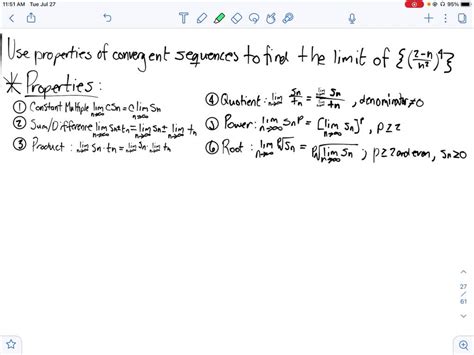 11:51 AM Tue Jul 27
95%
Use properties of convergent sequences to find the limit of {(2-n/n²)⁴}
* Properties:
① Constant Multiple lim n→∞ CSn = C lim n→∞ Sn
② Sum/Difference lim n→∞ Sn ± tn = lim n→∞ Sn ± lim n→∞ tn
③ Product: lim n→∞ Sn · tn = lim n→∞ Sn · lim n→∞ tn
④ Quotient: lim n→∞ Sn/tn = lim Sn/lim tn, denominator ≠ 0
⑤ Power: lim n→∞ Sn^p = [lim n→∞ Sn]^p, p≥2
⑥ Root: lim n→∞ p√Sn = p√lim n→∞ Sn, p≥2 and even, Sn≥0
27
/
61